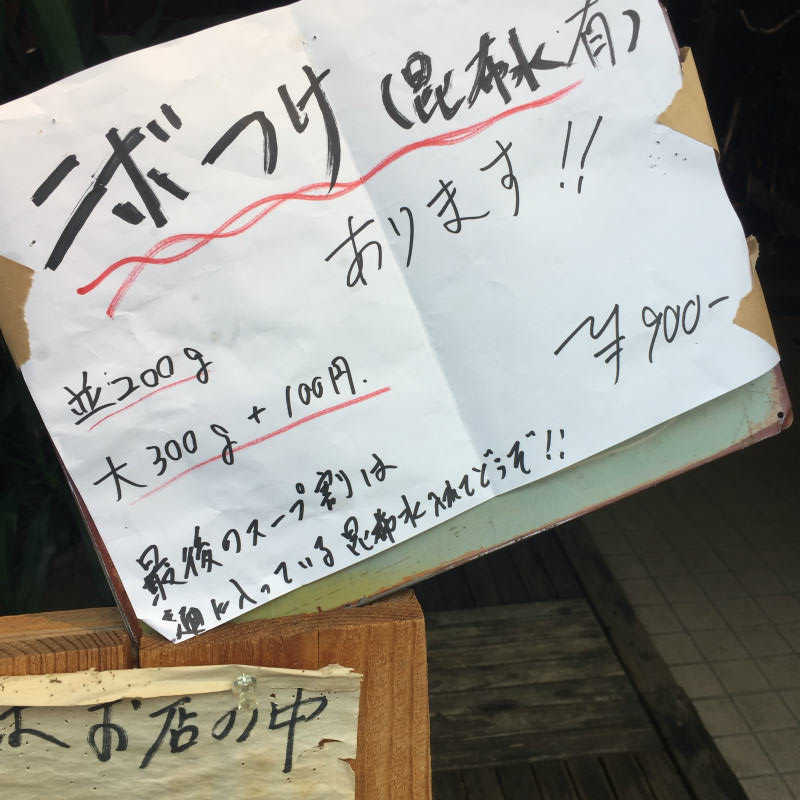 ニボつけ(昆布水有)
あります!!
¥900-
並200g
大300g+100円.
最後のスープ割は
麺に入っている昆布水入れてどうぞ!!
お店の中